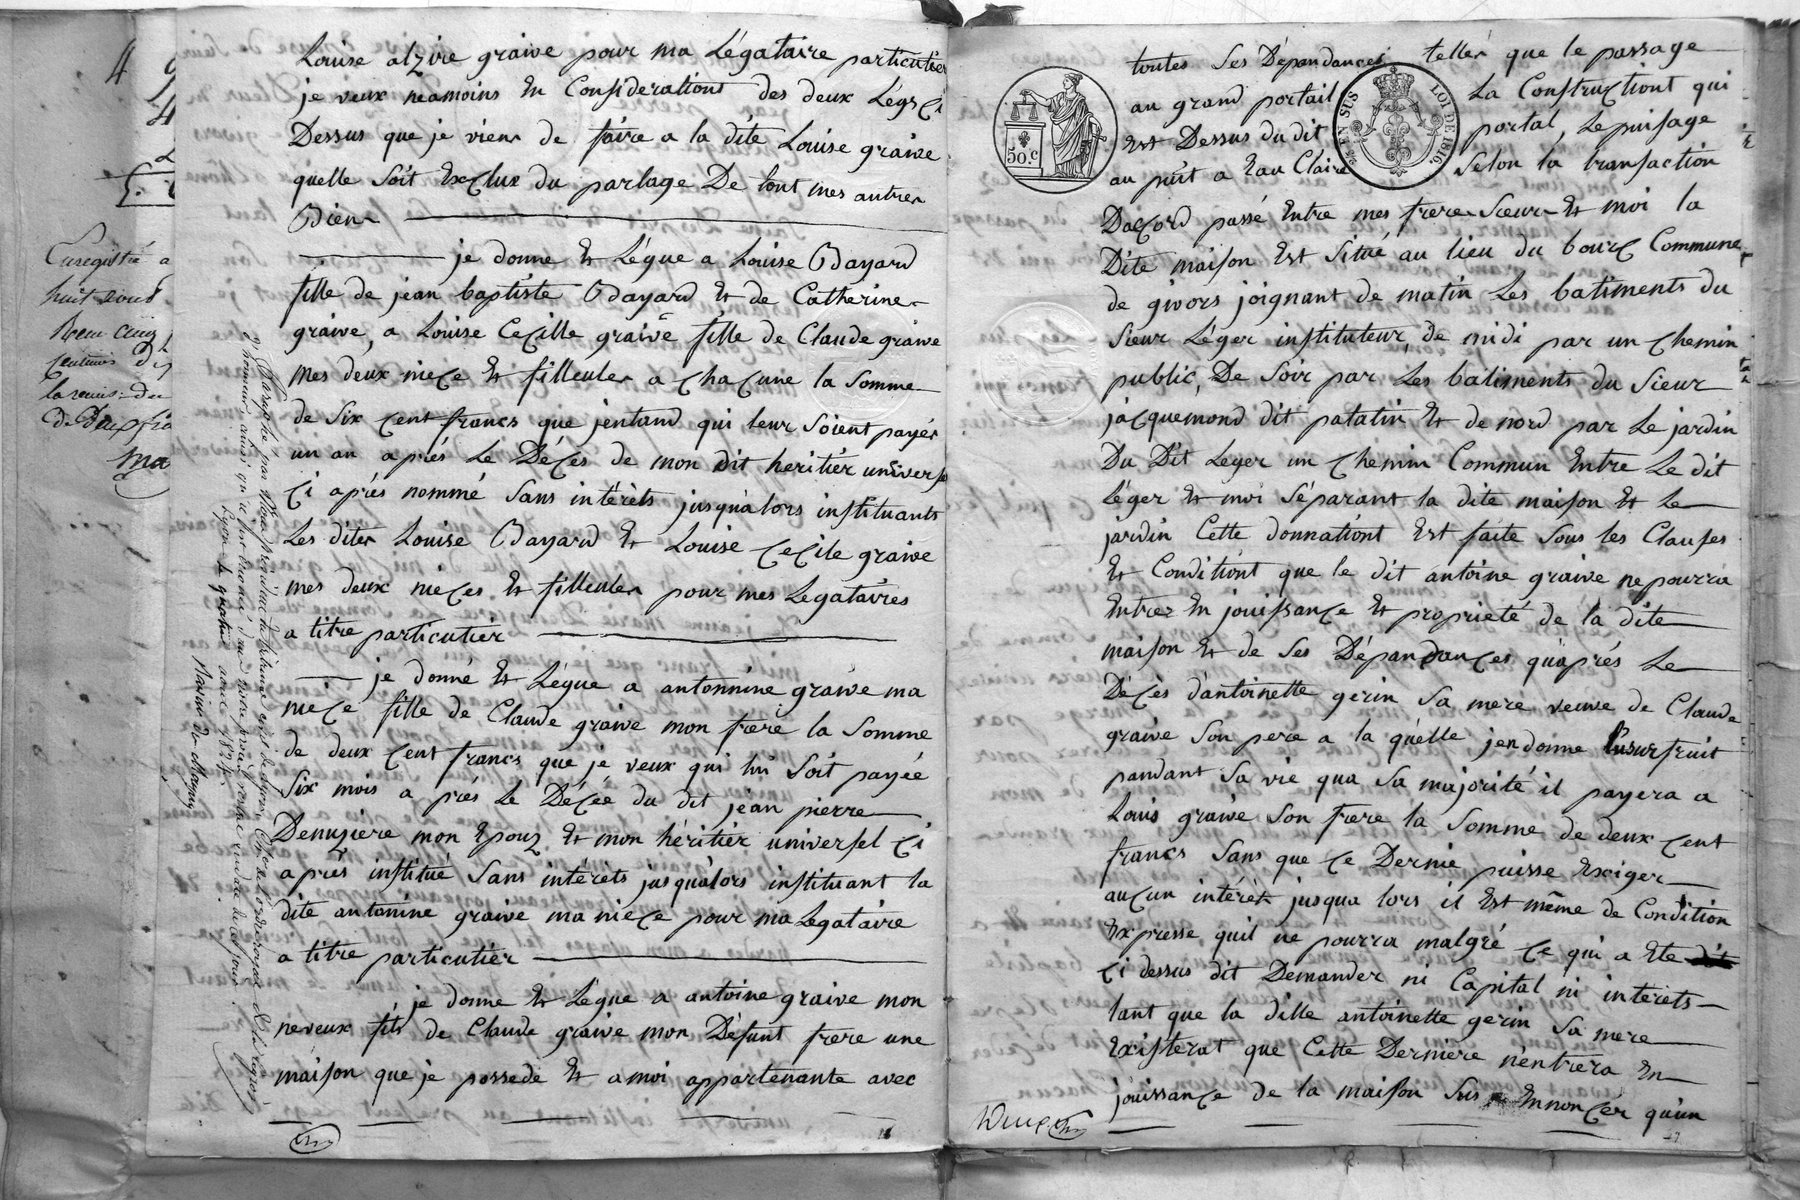 4
Enregistré a
huit vend
Louise alzire graive pour ma Légataire particutier
je veux neamoins En Considerationt des deux Légs Ci
Dessus que je viens de faire a la dite Louise graive
quelle Soit Exclux du partage De tout mes autres
Biens
je donne Et Légue a Louise Bayard
fille de jean baptiste Bayard Et de Catherine
graive, a Louise Cecille graive fille de Claude graive
mes deux niece Et filleules a chacune la Somme
de Six Cent francs que jentand qui leur Soient payés
un an aprés Le Déces de mon dit heritiér universe
Ci aprés nommé Sans intérêts jusqu'alors instituants
Les dites Louise Bayard Et Louise Cecile graive
mes deux nieces Et filleules pour mes Legataires
a titre particutiér
je donné Et Légue a antonnine graive ma
niece fille de Claude graive mon frere la Somme
de deux Cent francs que je veux qui lui Soit payée
Six mois a prés Le Décée du dit jean pierre
Denuziere mon Epoux Et mon héritiér universel Ci
aprés institué Sans intérêts jusqu'alors instituant la
dite antonine graive ma niece pour ma Legataire
a titre particutiér
je donne Et Légue a antoine graive mon
neveux fils de Claude graive mon Défunt frere une
maison que je possede Et a moi appartenante avec
Lyon le quatre avril 1824
toutes Ses Dépandances telles que le passage
au grand portail La Constructiont qui
Est Dessus du dit portal, Le puisage
au puit a Eau Claire Selon la transaction
50.c
EN SUS
LOI DE 1816
Daccord passé Entre mes freres Sœurs Et moi la
Dite maison Est Situé au lieu du bourc Commune
de givors joignant de matin Les batiments du
Sieur Léger instituteur, de midi par un Chemin
public, De Soir par Les batiments du Sieur
jacquemond dit patatin Et de nord par Le jardin
Du Dit Leger un Chemin Commun Entre Le dit
Léger Et moi Séparant la dite maison Et Le
jardin Cette donnationt Est faite Sous les Clauses
Et Conditiont que le dit antoine graive ne pourra
Entrer En jouissance Et proprieté de la dite
maison Et de Ses Dépandances qu'aprés Le
Décès d'antoinette gerin Sa mere veuve de Claude
graive Son pere a la quélle jendonne l'usurfruit
pandant Sa vie qua Sa majorité il payera a
Louis graive Son frere la Somme de deux Cent
francs Sans que Ce Dernie puisse Exiger
aucun intérêt jusqua lors il Est même de Condition
Expresse quil ne pourra malgré Ce qui a Ete
Ci dessus dit Demander ni Capital ni interets
tant que la ditte antoinette gerin Sa mere
Existerat que Cette Derniere n'entrera En
jouissance de la maison Sus Ennoncer qu'un